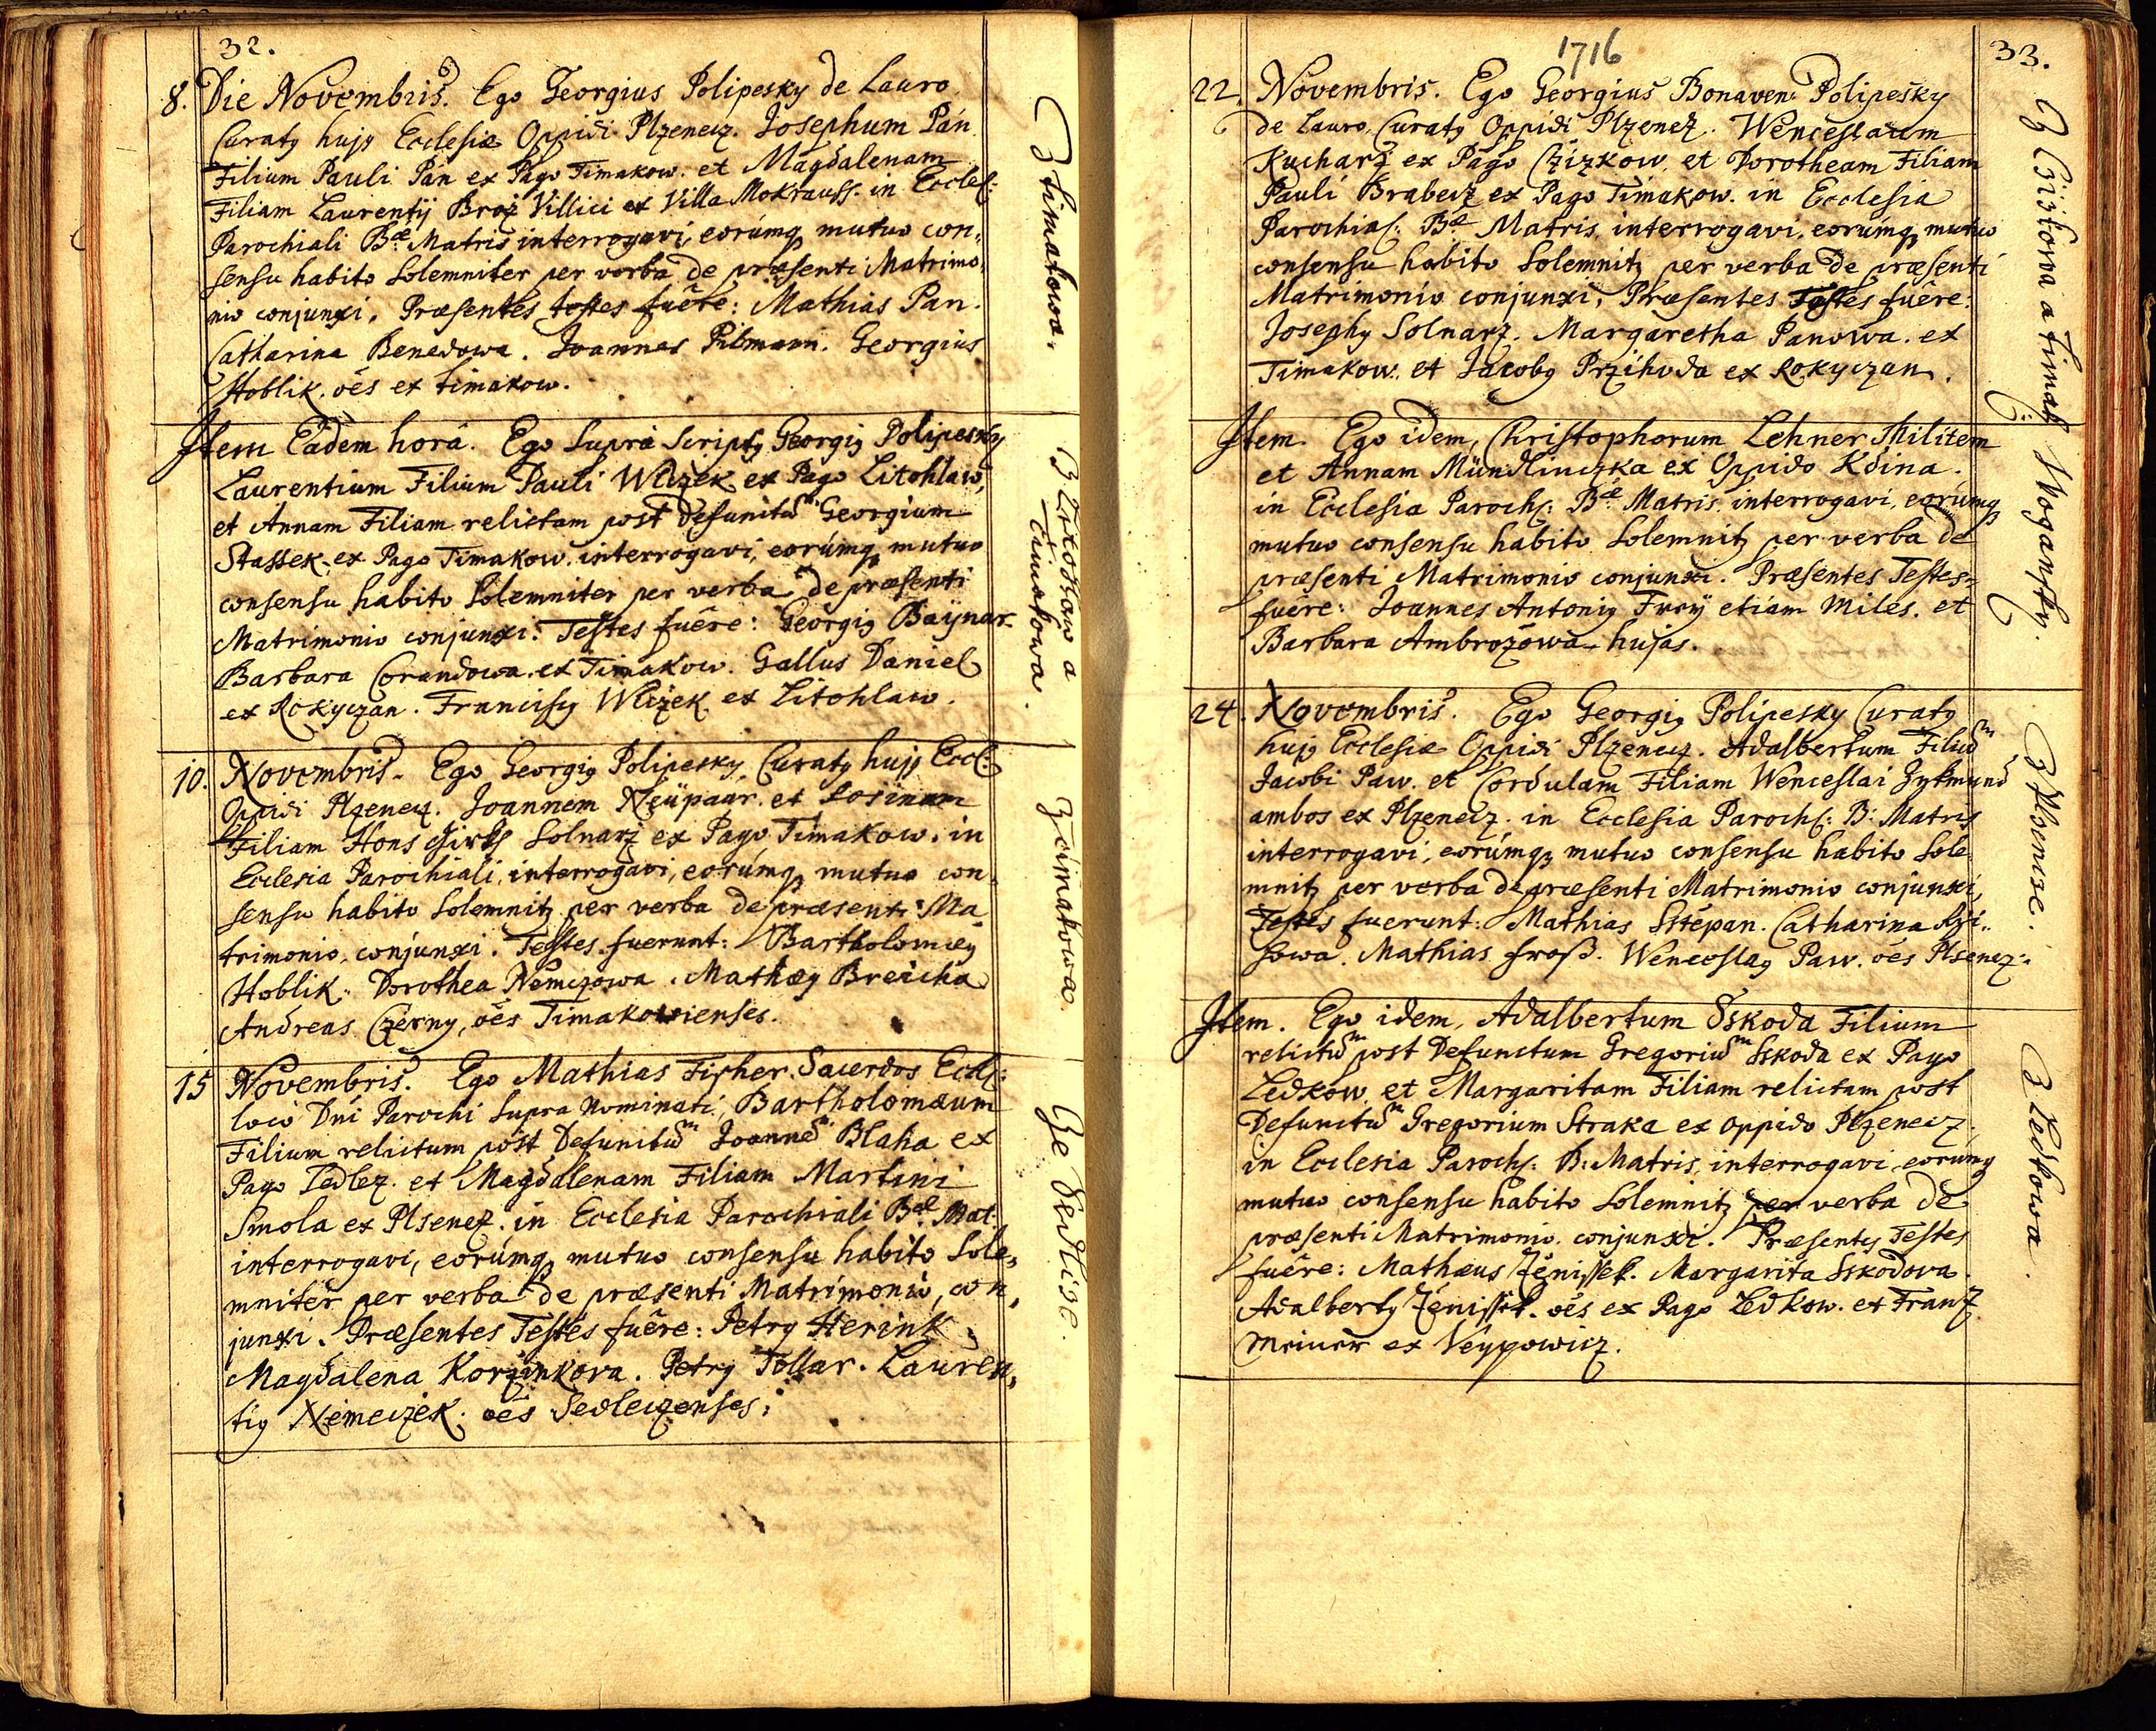 32.
8. Die Novembris. Ego Georgius Polipesky de Lauro
Curatq hujq Ecclesiæ Oppidi Plzenecz. Josephum Pán
Filium Pauli Pán ex Pago Timakow. et Magdalenam
Filiam Laurentÿ Broz Villici ex Villa Mokrauss. in Eccles:
Parochiali B.æ Matris interrogavi, eorúmq mutuo con,
sensu habito solemniter per verba de præsenti Matrimo,
nio conjunxi. Præsentes testes fuêre: Mathias Pan.
Catharina Benedowa. Joannes Pilmann. Georgius
Hoblik. oēs ex timakow.
Z timakowa.
Item Eâdem horâ. Ego supra Scriptq Georgiq Polipesky
Laurentium Filium Pauli Wlczek ex Pago Litohlaw,
et Annam Filiam relictam post Defunctū Georgium
Stassek. ex Pago Timakow. interrogavi, eorúmq mutuo
consensu habito Solemniter per verba de præsenti
Matrimonio conjunxi. Testes fuêre: Georgiq Baÿnar
Barbara Corandowa. ex Timakow. Gallus Daniel
ex Rokyczan. Franciscq Wlczek ex Litohlaw.
Timakowa.
10. Novembris. Ego Georgiq Polipesky Curatq hujq Eccl:
Oppidi Plzenecz. Joannem Neüpaur. et Rosinam
Filiam Hons Solnarz ex Pago Timakow. in
Ecclesia Parochiali, interrogavi, eorúmq mutuo con,
sensu habito Solemnitq per verba de præsenti Ma
trimonio, conjunxi. Testes fuerunt: Bartholomæq
Hoblik. Dorothea Nemczowa. Mathæq Breicha
Andreas Czerny, oēs Timakowienses.
Z timakowa.
15 Novembris. Ego Mathias Fisher. Sacerdos Eccl:
loco Dni Parochi supra Nominati, Bartholomæum
Filium relictum post Defunctū Joannē Blaha ex
Pago Zedlez. et Magdalenam Filiam Martini
Smola ex Plsenez. in Ecclesia Parochiali B.æ Mat:
interrogavi, eorúmq mutuo consensu habito Sole,
mniter per verba de præsenti Matrimonio, con,
junxi. Præsentes Testes fuêre: Petrq Herink
Magdalena Korzinkova. Petrq Tollar. Lauren,
tiq Nemeczek. oēs Sedleczenses.
Ze Sedlise.
1716
33.
22. Novembris. Ego Georgius Bonaven: Polipesky
de Lauro, Curatq Oppidi Plzenez. Wenceslaum
Kucharz ex Pago Czizkow, et Dorotheam Filiam
Pauli Brabecz ex Pago Timakow. in Ecclesia
Parochial: B.æ Matris, interrogavi, eorúmq mutuo
consensu habito Solemnitq per verba de præsenti
Matrimonio conjunxi. Præsentes Testes fuêre:
Josephq Solnarz. Margaretha Panowa. ex
Timakow. et Jacobq Przihoda ex Rokyczan.
Item. Ego idem, Christophorum Lehner Militem
et Annam Münchinczka ex Oppido Kdina.
in Ecclesia Paroch: B.æ Matris, interrogavi, eorúmq
mutuo consensu habito Solemnitq per verba de
præsenti Matrimonio conjunxi. Præsentes Testes
fuêre: Joannes Antoniq Frey etiam Miles. et
Barbara Ambrozowa hujas.
24. Novembris. Ego Georgiq Polipesky Curatq
hujq Ecclesiæ Oppidi Plzenecz. Adalbertum Filiū
Jacobi Paw. et Cordulam Filiam Wenceslai Zykmund
ambos ex Plzenecz. in Ecclesia Paroch: B: Matris
interrogavi, eorúmq mutuo consensu habito Sole
mnitq per verba de præsenti Matrimonio conjunxi,
Testes fuerunt: Mathias Sstepan. Catharina
Mathias Froß. Wenceslaq Paw. oēs Plsenez:
Z Plsencze.
Item. Ego idem, Adalbertum Sskoda Filium
relictū post Defunctum Gregoriū Sskoda ex Pago
Ledkow, et Margaritam Filiam relictam post
Defunctū Gregorium Straka ex oppido Plzenecz.
in Ecclesia Paroch: B: Matris, interrogavi, eorúmq
mutuo consensu habito Solemnitq per verba de
præsenti Matrimonio conjunxi. Præsentes Testes
fuêre: Mathæus Jenissek. Margarita Sskodova.
Adalbertq Jenissek. oēs ex Pago Ledkow. et Franz
ex Veyppowicz.
Z Ledkowa.